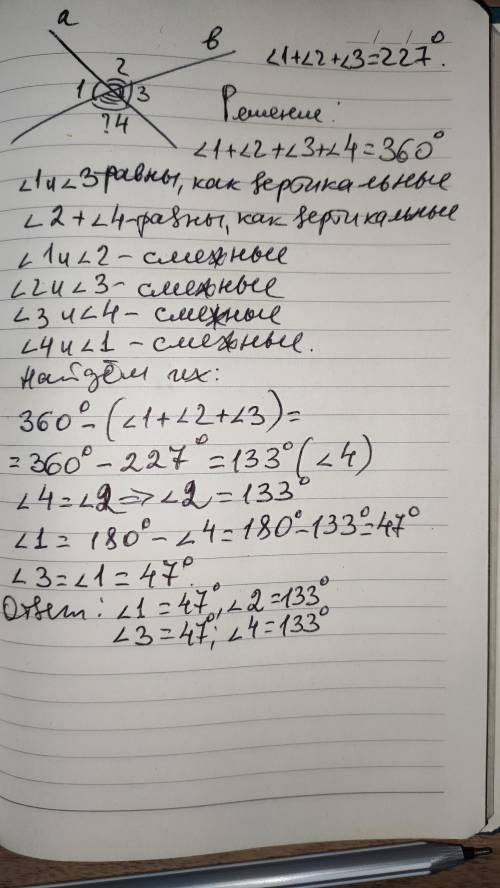 a
в
∠1+∠2+∠3=227°.
2
1 3
?4
Решение:
∠1+∠2+∠3+∠4=360°
∠1и∠3-равны, как вертикальные
∠2+∠4-равны, как вертикальные
∠1и∠2 - смежные
∠2и∠3 - смежные
∠3и∠4 - смежные
∠4и∠1 - смежные.
найдём их:
360° - (∠1+∠2+∠3)=
= 360° - 227° = 133° (∠4)
∠4=∠2 => ∠2 = 133°
∠1 = 180° - ∠4 = 180° - 133° = 47°
∠3 = ∠1 = 47°.
Ответ: ∠1 = 47°, ∠2 = 133°
∠3 = 47°; ∠4 = 133°